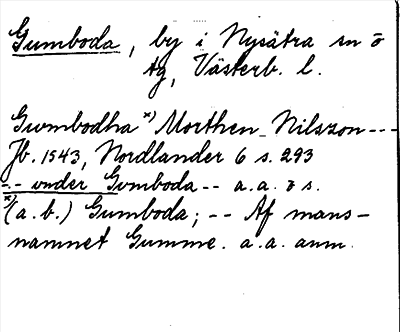 Gumboda, by i Nysätra sn o
tg, Västerb. l.
Gwmbodha x) Morthen Nilszon ---
Jb. 1543, Nordlander 6 s. 293
--- under Gvmboda -- a.a. o s.
x) (a.b.) Gumboda; -- Af mans-
namnet Gumme. a.a. anm.